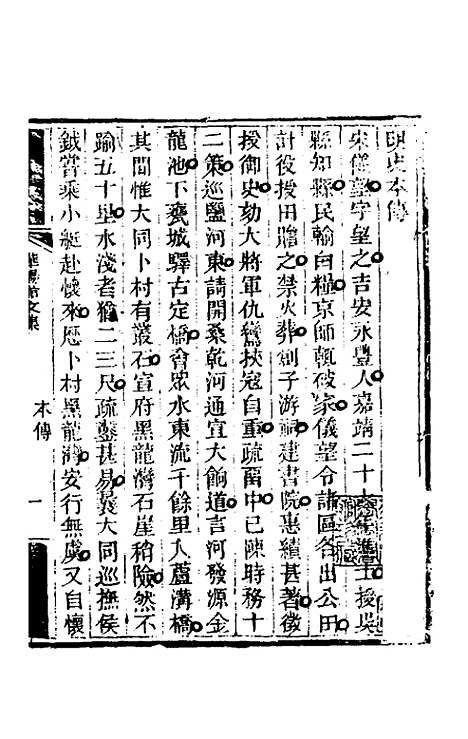 明史本傳
宋儀望字望之吉安永豐人嘉靖二十六年進士授吳
縣知縣民輸白糧京師輒破家儀望令諸區各出公田
計役授田贍之禁火葬創子游祠建書院惠績甚著徵
授御史劾大將軍仇鸞挾寇自重疏畱中已陳時務十
二策巡鹽河東請開桑乾河通宣大餉道言河發源金
龍池下甕城驛古定橋會眾水東流千餘里入蘆溝橋
其間惟大同卜村有叢石宣府黑龍灣石崖稍險然不
踰五十里水淺者猶二三尺疏鑿甚易曩大同巡撫侯
鉞嘗乘小艇赴懷來歷卜村黑龍灣安行無虞又自懷
華陽館文集
本傳
一